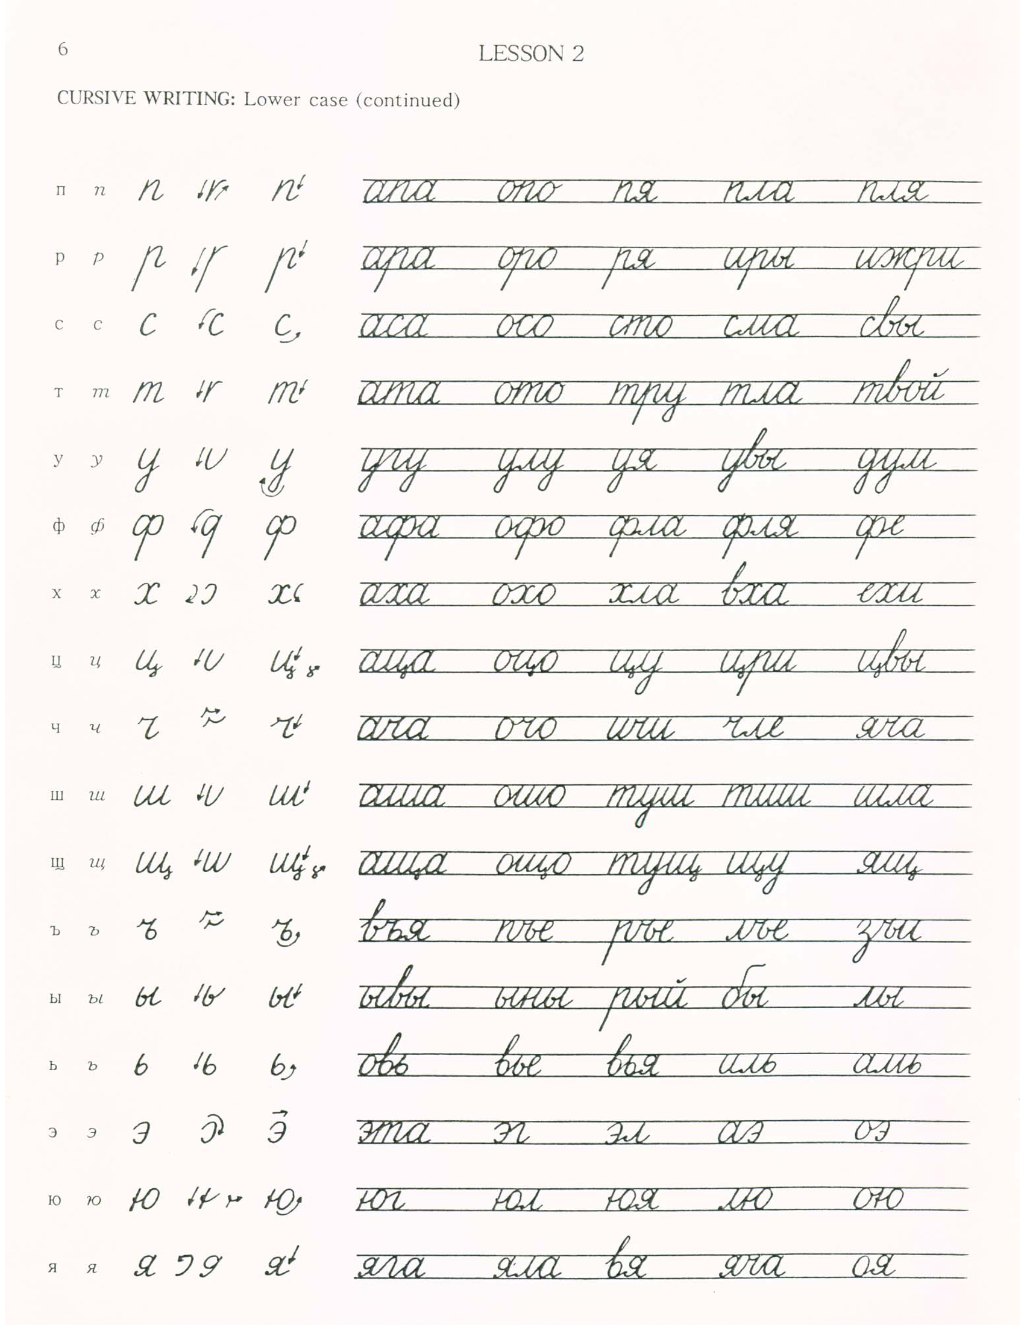 6
LESSON 2
CURSIVE WRITING: Lower case (continued)
п п п п апа опо пя пла пля
р р р р ара оро ря иры ижри
с с с с аса осо сто сма свы
т т т т ата ото тру тла твой
у у у у угу улу уя увы дум
ф ф ф ф афа офо фла фля фе
х х х х аха охо хла вха ехи
ц ц ц ц аца оцо цу цри цвы
ч ч ч ч ача очо ичи чле яча
ш ш ш ш аша ошо туш тиш шла
щ щ щ щ аща ощо тущ щу ящ
ъ ъ ъ ъ въя пъе ръе лъе
ы ы ы ы ывы ыны рый бы лы
ь ъ ь ь овь вье вья иль амь
э э э э эта эг эл аэ оэ
ю ю ю ю юг юл юя лю ою
я я я я яга яла вя яча оя